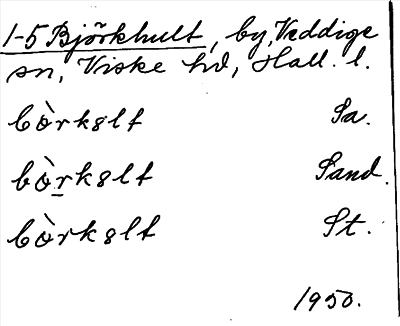 1-5 Björkhult, by, Veddige
sn, Viske hd, Hall. l.
bòrkǝlt Sa.
bòr̲kǝlt Sand.
bòrkǝlt St.
1950.